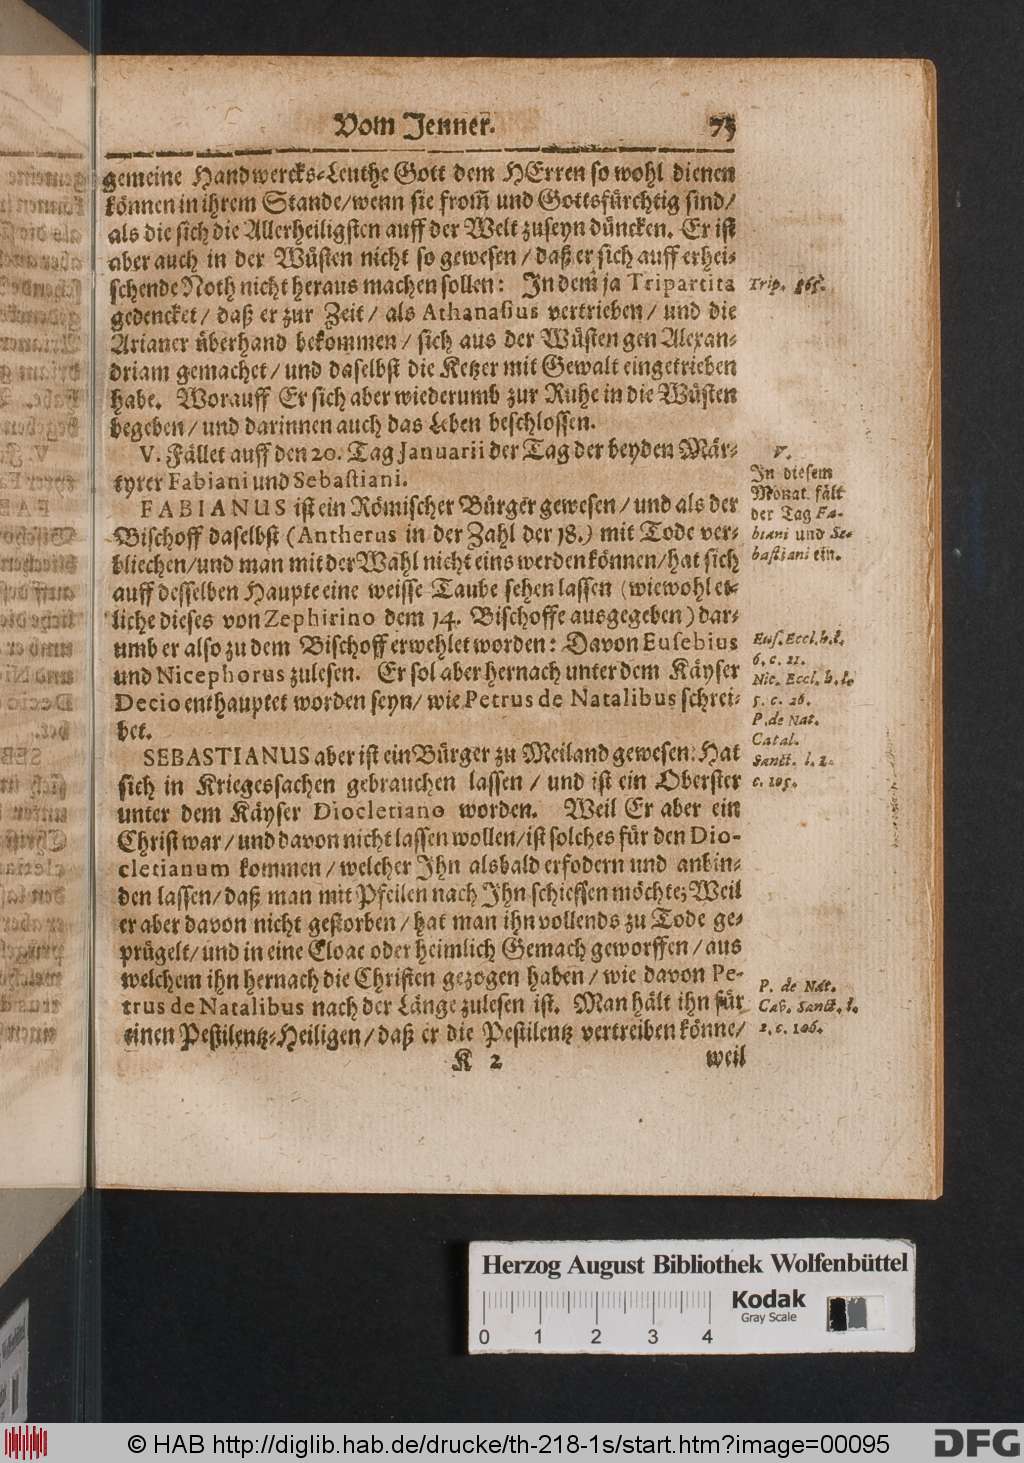 Vom Jenner. 75
gemeine Handwercks-Leuthe Gott dem HErren so wohl dienen
können in ihrem Stande/wenn sie from̃ und Gottsfürchtig sind/
als die sich die Allerheiligsten auff der Welt zuseyn düncken. Er ist
aber auch in der Wüsten nicht so gewesen/ daß er sich auff erhei-
schende Noth nicht heraus machen sollen: Indem ja Tripartita
Trip. 365.
gedencket/ daß er zur Zeit/ als Athanasius vertrieben/ und die
Arianer überhand bekommen/ sich aus der Wüsten gen Alexan-
driam gemachet/ und daselbst die Ketzer mit Gewalt eingetrieben
habe. Worauff Er sich aber wiederumb zur Ruhe in die Wüsten
begeben/ und darinnen auch das Leben beschlossen.
V. Fället auff den 20. Tag Januarii der Tag der beyden Mär-
tyrer Fabiani und Sebastiani.
V.
In diesem
Monat fält
der Tag Fa-
biani und Se-
bastiani ein.
FABIANUS ist ein Römischer Bürger gewesen/ und als der
Bischoff daselbst (Antherus in der Zahl der 18.) mit Tode ver-
bliechen/und man mit der Wahl nicht eins werden können/hat sich
auff desselben Haupte eine weisse Taube sehen lassen (wiewohl et-
liche dieses von Zephirino dem 14. Bischoffe ausgegeben) dar-
umb er also zu dem Bischoff erwehlet worden: Davon Eusebius
und Nicephorus zulesen. Er sol aber hernach unter dem Käyser
Decio enthauptet worden seyn/ wie Petrus de Natalibus schrei-
bet.
Eus. Eccl. h. l.
6. c. 21.
Nic. Eccl. h. l.
5. c. 26.
P. de Nat.
Catal.
Sanct. l. 2.
c. 105.
SEBASTIANUS aber ist ein Bürger zu Meiland gewesen: Hat
sich in Kriegessachen gebrauchen lassen/ und ist ein Oberster
unter dem Käyser Diocletiano worden. Weil Er aber ein
Christ war/ und davon nicht lassen wollen/ist solches für den Dio-
cletianum kommen/ welcher Ihn alsbald erfodern und anbin-
den lassen/ daß man mit Pfeilen nach Ihn schiessen möchte; Weil
er aber davon nicht gestorben/ hat man ihn vollends zu Tode ge-
prügelt/ und in eine Cloac oder heimlich Gemach geworffen/ aus
welchem ihn hernach die Christen gezogen haben/ wie davon Pe-
trus de Natalibus nach der Länge zulesen ist. Man hält ihn für
einen Pestilentz-Heiligen/ daß er die Pestilentz vertreiben könne/
P. de Nat.
Cat. Sanct. l.
2. c. 106.
K 2 weil
Herzog August Bibliothek Wolfenbüttel
0 1 2 3 4
Kodak
Gray Scale
© HAB http://diglib.hab.de/drucke/th-218-1s/start.htm?image=00095
DFG